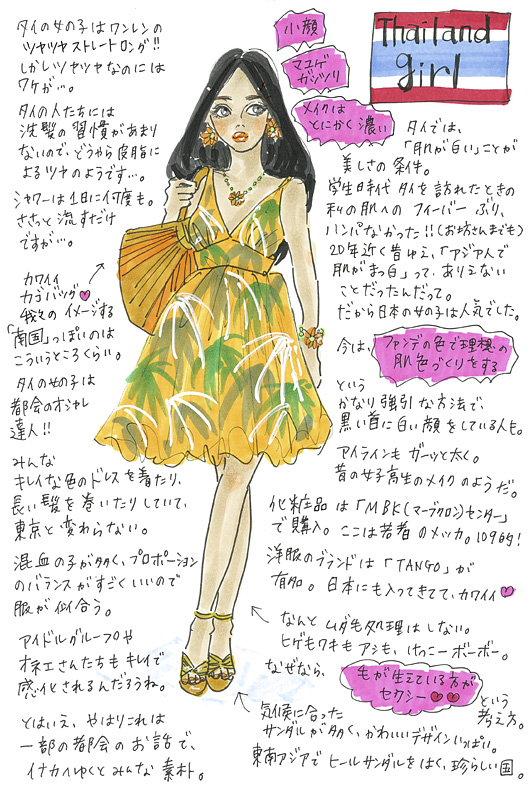 Thailand
girl
タイの女の子はワンレンの
ツヤツヤストレートロング!!
しかしツヤツヤなのには
ワケが…。
タイの人たちには
洗髪の習慣があまり
ないので、どうやら皮脂に
よるツヤのようです…。
シャワーは1日に何度も。
ささっと流すだけ
ですが…。
カワイイ
カゴバッグ
我々のイメージする
「南国」っぽいのは
こういうところくらい。
タイの女の子は
都会のオシャレ
達人!!
みんな
キレイな色のドレスを着たり、
長い髪を巻いたりしていて、
東京と変わらない。
混血の子が多く、プロポーション
のバランスがすごくいいので
服が似合う。
アイドルグループや
オネエさんたちもキレイで
感化されるんだろうね。
とはいえ、やはりこれは
一部の都会のお話で、
イナカへゆくとみんな素朴。
小顔
マユゲ
ガッツリ
メイクは
とにかく濃い
タイでは、
「肌が白い」ことが
美しさの条件。
学生時代タイを訪れたときの
私の肌へのフィーバーぶり、
ハンパなかった!!(お坊さんまでも)
20年近く昔ゆえ、「アジア人で
肌がまっ白」って、ありえない
ことだったんだって。
だから日本の女の子は人気でした。
今は、ファンデの色で理想の
肌色づくりをする
という
かなり強引な方法で、
黒い首に白い顔をしている人も。
アイラインもガーッと太く。
昔の女子高生のメイクのようだ。
化粧品は「MBK(マーブンクロン)センター」
で購入。ここは若者のメッカ。109的!
洋服のブランドは「TANGO」が
有名。日本にも入ってきてて、カワイイ
なんとムダ毛処理はしない。
ヒゲもワキもアシも、けっこーボーボー。
なぜなら、
毛が生えている方が
セクシー
という
考え方。
気候に合った
サンダルが多く、かわいいデザインいっぱい。
東南アジアでヒールサンダルをはく、珍らしい国。